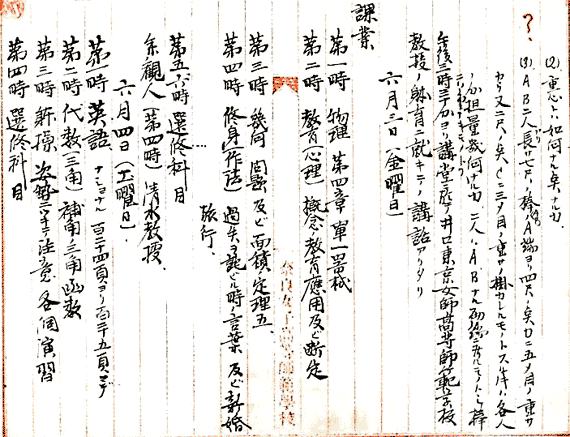 (2) 重心トハ如何ナル点ナルカ.
? (3) AB二人長サ七尺ノ棒ノA端ヨリ四尺ノ点カニ五〆目ノ重サ
カラ又二尺ノ点Cニ三〆目ノ重サヲ掛カレルモノトスルキハ各人
ノ分担量幾何ナルカ
午後三時三十分ヨリ講堂ニ於テ井口東京女師高等師範学校
教授ノ躰育ニ就キテノ講話アリタリ
六月三日(金曜日)
課業
第一時 物理 第四章 単一器械
第二時 教育(心理) 概念 教育應用及ビ断定
第三時 幾何 問題 及ビ面積定理五.
第四時 修身(作法) 過失ヲ詫ビル時ノ言葉 及ビ新婚
旅行.
第五六時 選修科目
参観人(第四時) 清水教授.
六月四日(土曜日).
第一時 英語 ナショナル 百二十四頁ヨリ百二十五頁マデ
第二時 代数(三角) 補角三角函数
第三時 新操 姿勢ニツキテ注意 各個演習
第四時 選修科目